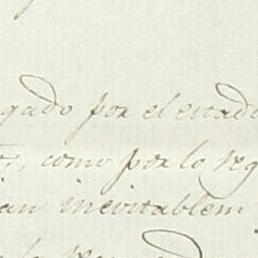 gado por el estado
como por lo reg
ian inevitablem